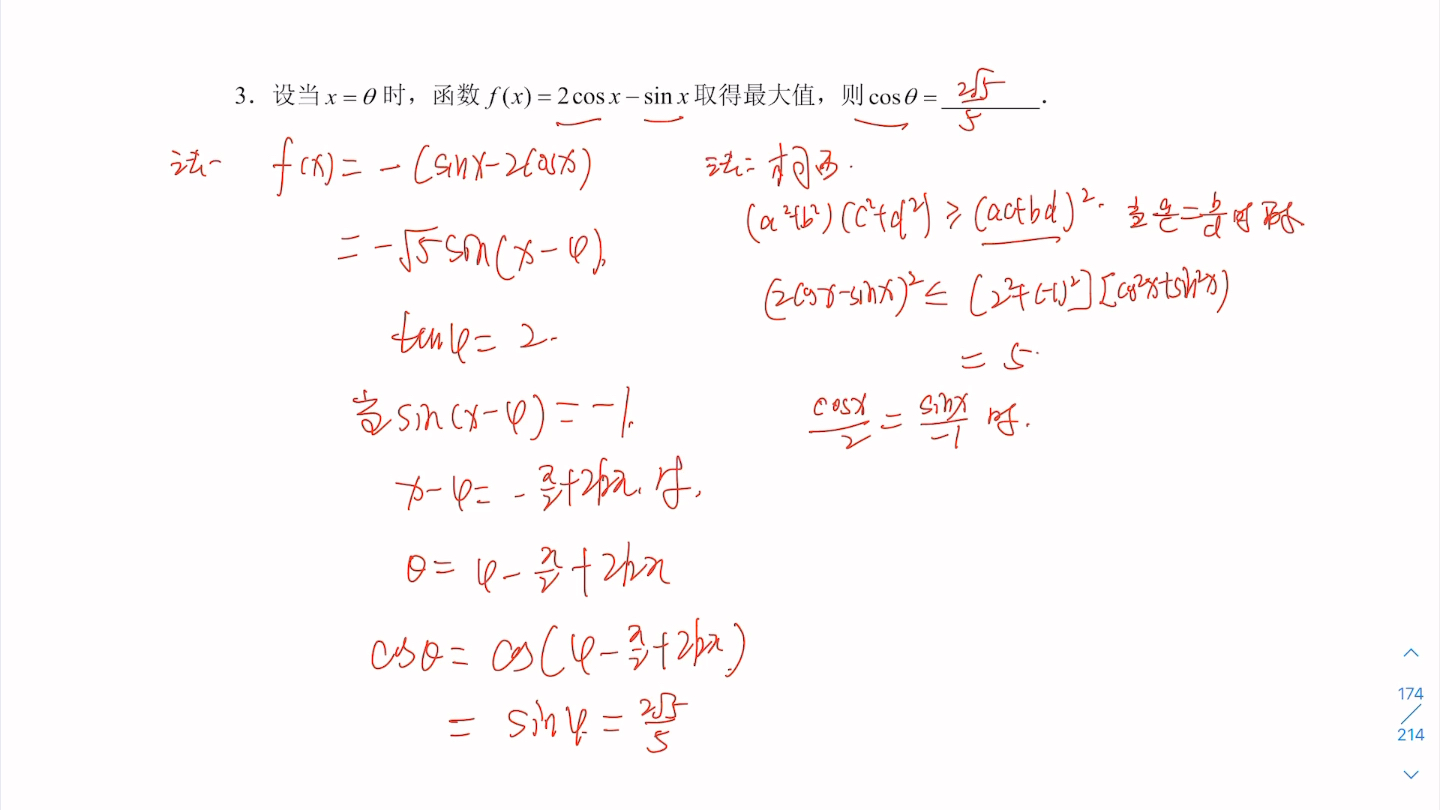 3. 设当 x = θ 时，函数 f(x) = 2cos x − sin x 取得最大值，则 cos θ = 2√5/5 .
法一 f(x) = -(sinx-2cosx)
= -√5 sin(x-φ),
tanφ = 2.
当 sin(x-φ) = -1.
x-φ = -π/2+2kπ. 时,
θ = φ-π/2+2kπ
cosθ = cos(φ-π/2+2kπ)
= sinφ = 2√5/5
法二 柯西.
(a²+b²)(c²+d²) ≥ (ac+bd)². 当 a/c = b/d 时 取.
(2cosx-sinx)² ≤ [2²+(-1)²][cos²x+sin²x)
= 5.
cosx/2 = sinx/-1 时.
174
214